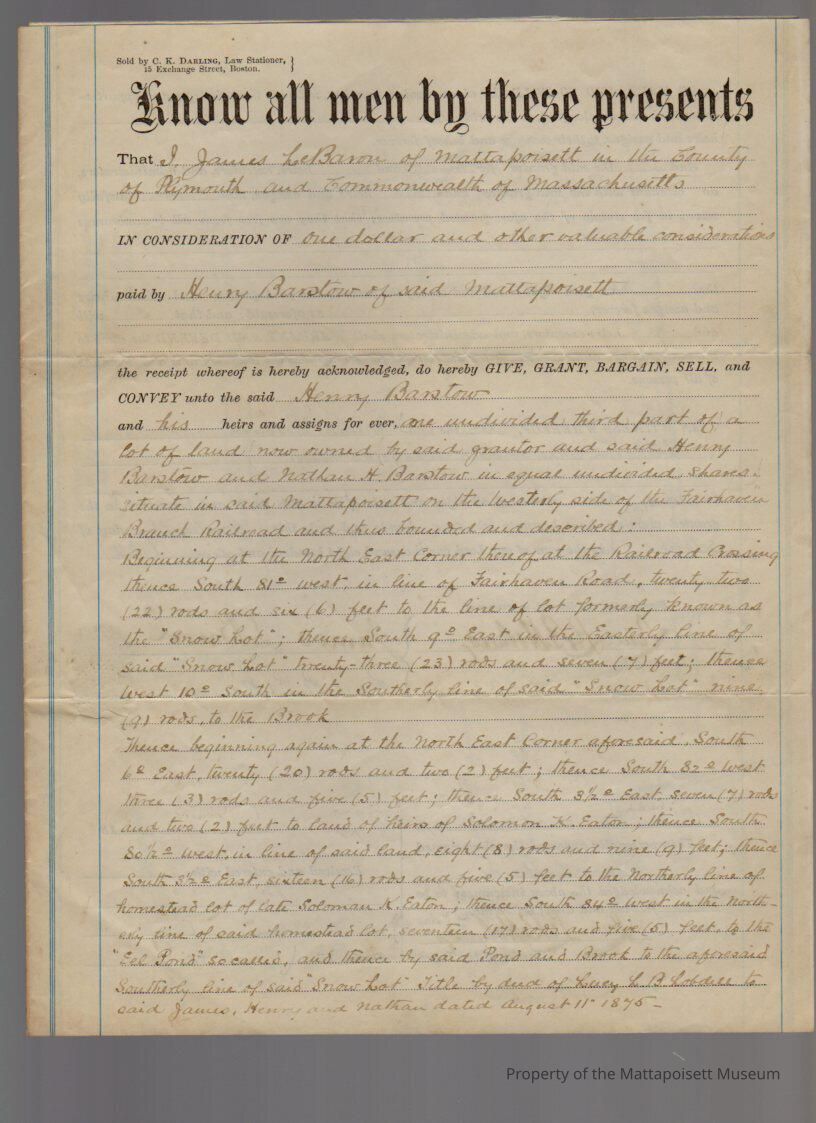 Sold by C. K. DARLING, Law Stationer, }
15 Exchange Street, Boston.
Know all men by these presents
That I, James LeBaron of Mattapoisett in the County
of Plymouth and Commonwealth of Massachusetts
IN CONSIDERATION OF one dollar and other valuable considerations
paid by Henry Barstow of said Mattapoisett
the receipt whereof is hereby acknowledged, do hereby GIVE, GRANT, BARGAIN, SELL, and
CONVEY unto the said Henry Barstow
and his heirs and assigns for ever, one undivided third part of a
lot of land now owned by said grantor and said Henry
Barstow and Nathan H. Barstow in equal undivided shares:
situate in said Mattapoisett on the Westerly side of the Fairhaven
Branch Railroad and thus bounded and described:
Beginning at the North East Corner thereof at the Railroad Crossing
thence South 81° West, in line of Fairhaven Road, twenty two
(22) rods and six (6) feet to the line of lot formerly known as
the "Snow Lot"; thence South 9° East in the Easterly line of
said "Snow Lot" twenty-three (23) rods and seven (7) feet; thence
West 10° South in the Southerly line of said "Snow Lot" nine
(9) rods, to the Brook
Thence beginning again at the North East Corner aforesaid South
6° East, twenty (20) rods and two (2) feet; thence South 82° West
three (3) rods and five (5) feet; thence South 3½° East, seven (7) rods
and two (2) feet to land of heirs of Solomon K. Eaton; thence South
80½° West, in line of said land, eight (8) rods and nine (9) feet; thence
South 3½° East, sixteen (16) rods and five (5) feet to the Northerly line of
homestead lot of late Soloman K. Eaton; thence South 84° West in the North-
erly line of said homestead lot, seventeen (17) rods and five (5) feet, to the
"Eel Pond" so called, and thence by said Pond and Brook to the aforesaid
Southerly line of said "Snow Lot" Title by deed of Lucy L. B. Lobdell to
said James, Henry and Nathan dated August 11" 1875 -
Property of the Mattapoisett Museum